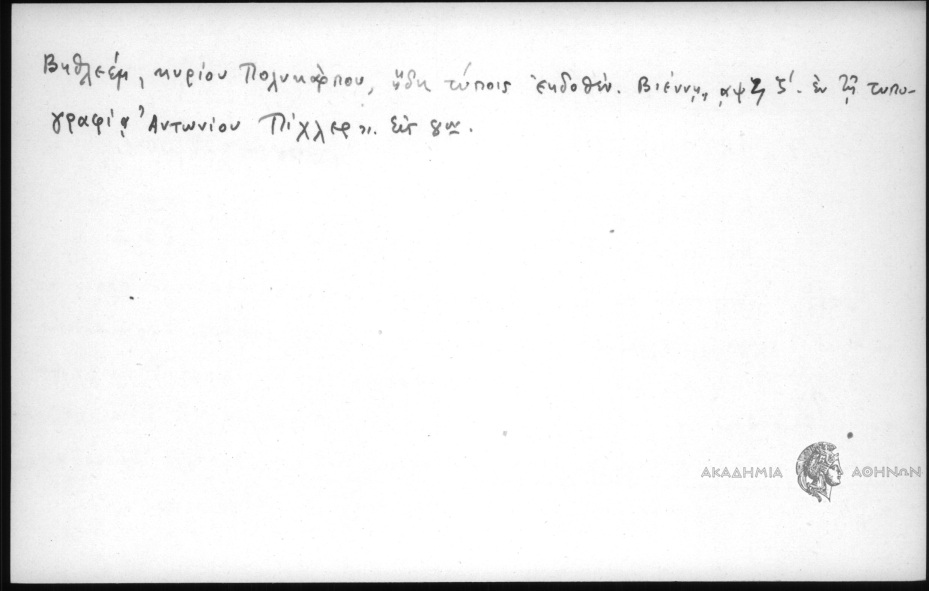 Βηθλεέμ, κυρίου Πολυκάρπου, ἤδη τύποις ἐκδοθέν. Βιέννῃ, ͵αψϟζ΄. ἐν τῇ τυπο-
γραφίᾳ Ἀντωνίου Πίχλερ». Εἰς 8ον.
ΑΚΑΔΗΜΙΑ ΑΘΗΝΩΝ